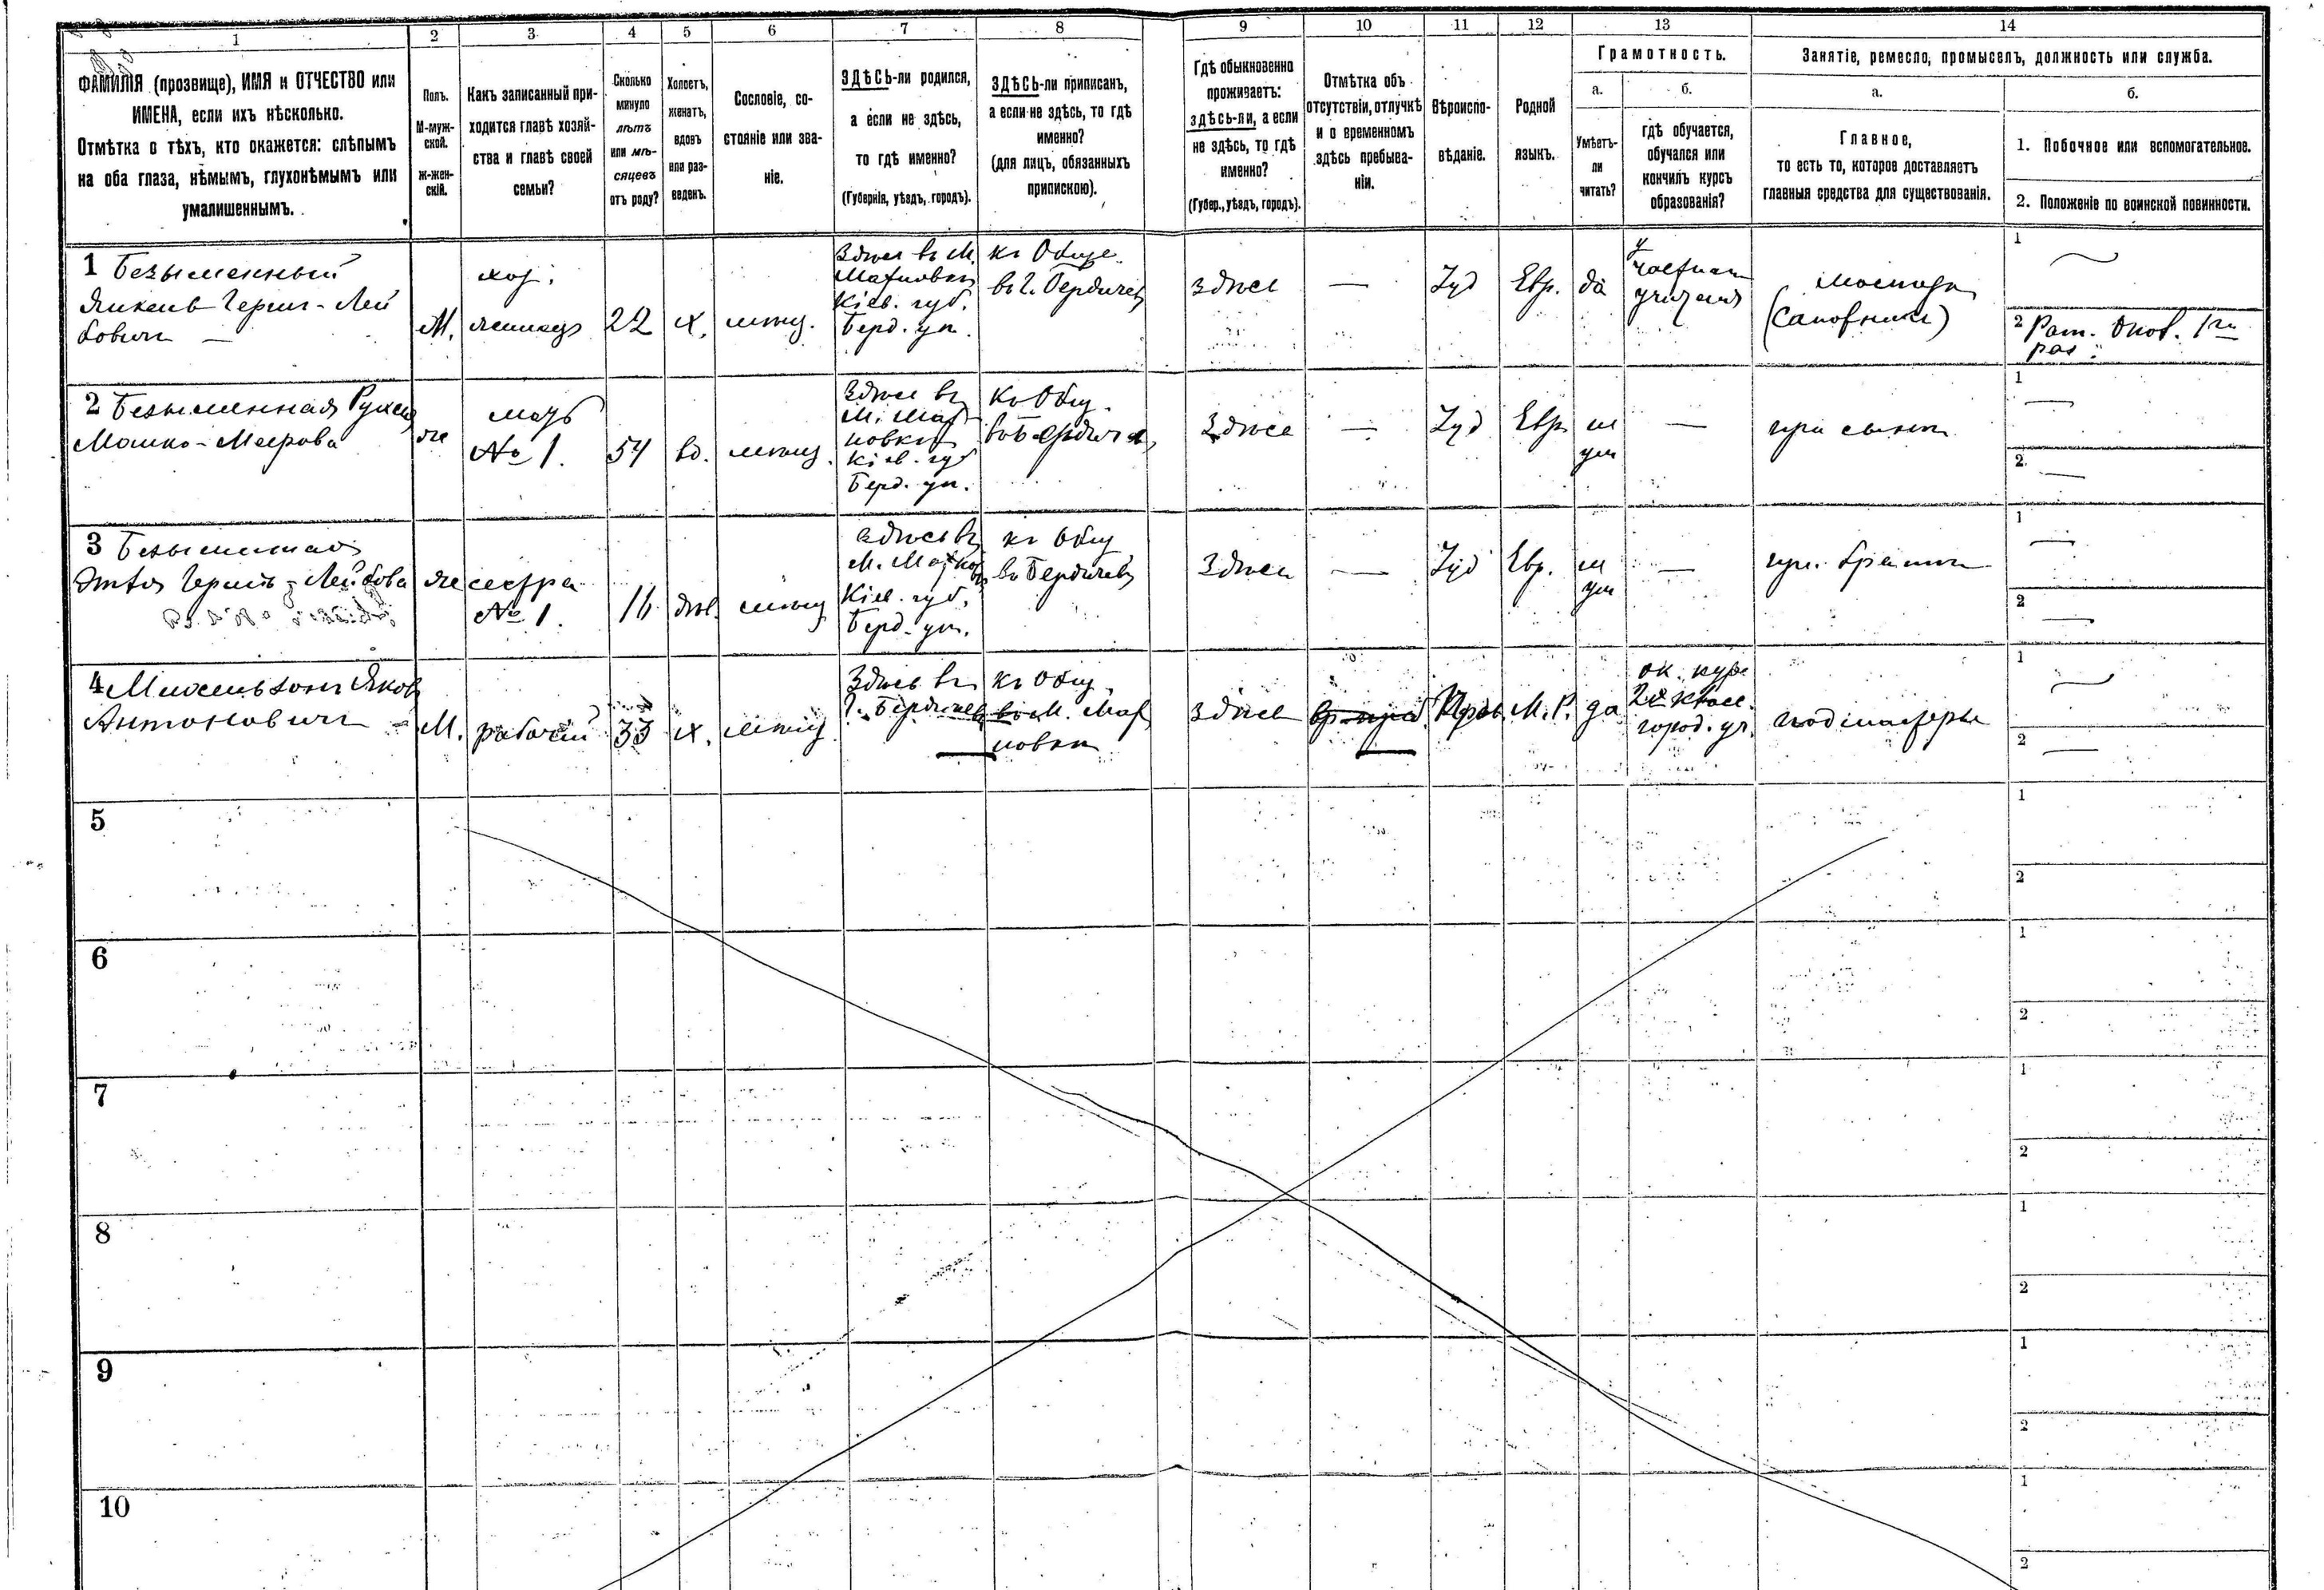 1
2
3
4
5
6
7
8
9
10
11
12
13
14
ФАМИЛІЯ (прозвище), ИМЯ и ОТЧЕСТВО или
ИМЕНА, если ихъ нѣсколько.
Отмѣтка о тѣхъ, кто окажется: слѣпымъ
на оба глаза, нѣмымъ, глухонѣмымъ или
умалишеннымъ.
Полъ.
М-муж-
ской.
ж-жен-
скій.
Какъ записанный при-
ходится главѣ хозяй-
ства и главѣ своей
семьи?
Сколько
минуло
лѣтъ
или мѣ-
сяцевъ
отъ роду?
Холостъ,
женатъ,
вдовъ
или раз-
веденъ.
Сословіе, со-
стояніе или зва-
ніе.
ЗДѢСЬ-ли родился,
а если не здѣсь,
то гдѣ именно?
(Губернія, уѣздъ, городъ).
ЗДѢСЬ-ли приписанъ,
а если не здѣсь, то гдѣ
именно?
(для лицъ, обязанныхъ
припискою).
Гдѣ обыкновенно
проживаетъ:
здѣсь-ли, а если
не здѣсь, то гдѣ
именно?
(Губер., уѣздъ, городъ).
Отмѣтка объ
отсутствіи, отлучкѣ
и о временномъ
здѣсь пребыва-
ніи.
Вѣроиспо-
вѣданіе.
Родной
языкъ.
Грамотность.
а.
Умѣетъ-
ли
читать?
б.
гдѣ обучается,
обучался или
кончилъ курсъ
образованія?
Занятіе, ремесло, промыселъ, должность или служба.
а.
Главное,
то есть то, которое доставляетъ
главныя средства для существованія.
б.
1. Побочное или вспомогательное.
2. Положеніе по воинской повинности.
1 Безыменный
Лей
бовичъ
М.
хоз.
22
х.
мѣщ.
Здѣсь въ М.
Махновкѣ
Кіев. губ.
Берд. уѣ.
къ Обще.
въ г. Бердичевѣ
здѣсь
—
Іуд
Евр.
да
у
частнаго
учителя
(Сапожникъ)
1
2
раз.
2 Безыменная
Мошко-Меерова
же
мать
№ 1.
54
вд.
мѣщ.
Здѣсь въ
М. Мах
новкѣ
Кіев. губ
Берд. уѣ.
къ Общ.
въ Бердичевѣ
Здѣсь
—
Іуд
Евр
не
ум
—
при сынѣ
1
2
3 Безыменная
Лейбова
же
сестра
№ 1.
16
дѣв.
мѣщ
здѣсь въ
М. Махнов
Кіев. губ.
Берд. уѣ.
къ Общ
въ Бердичевѣ
Здѣсь
—
Іуд
Евр.
не
ум
—
при братѣ
1
2
4
Яковъ
Антоновичъ
М.
рабочій
33
х.
мѣщ
Здѣсь въ
г. Бердичевѣ
къ Общ.
въ М. Мах
новкѣ
здѣсь
Прав.
М. Р.
да
ок. курс
2х класс.
город. уч.
подмастерье
1
2
5
1
2
6
1
2
7
1
2
8
1
2
9
1
2
10
1
2